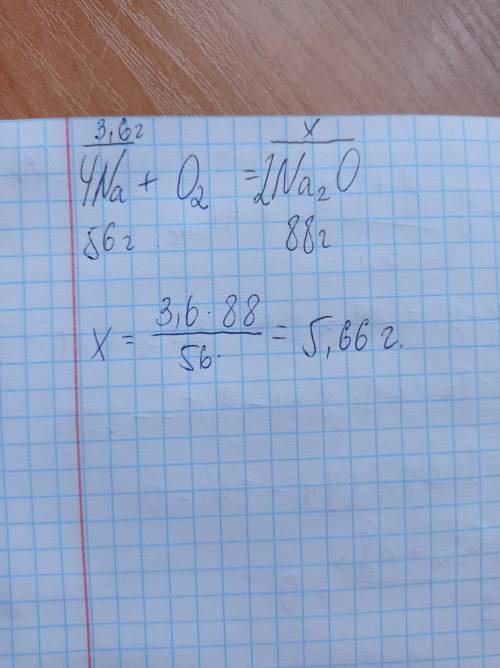 3,6г x
4Na + O₂ = 2Na₂O
56г 88г
x = 3,6 · 88 / 56 · = 5,66 г.